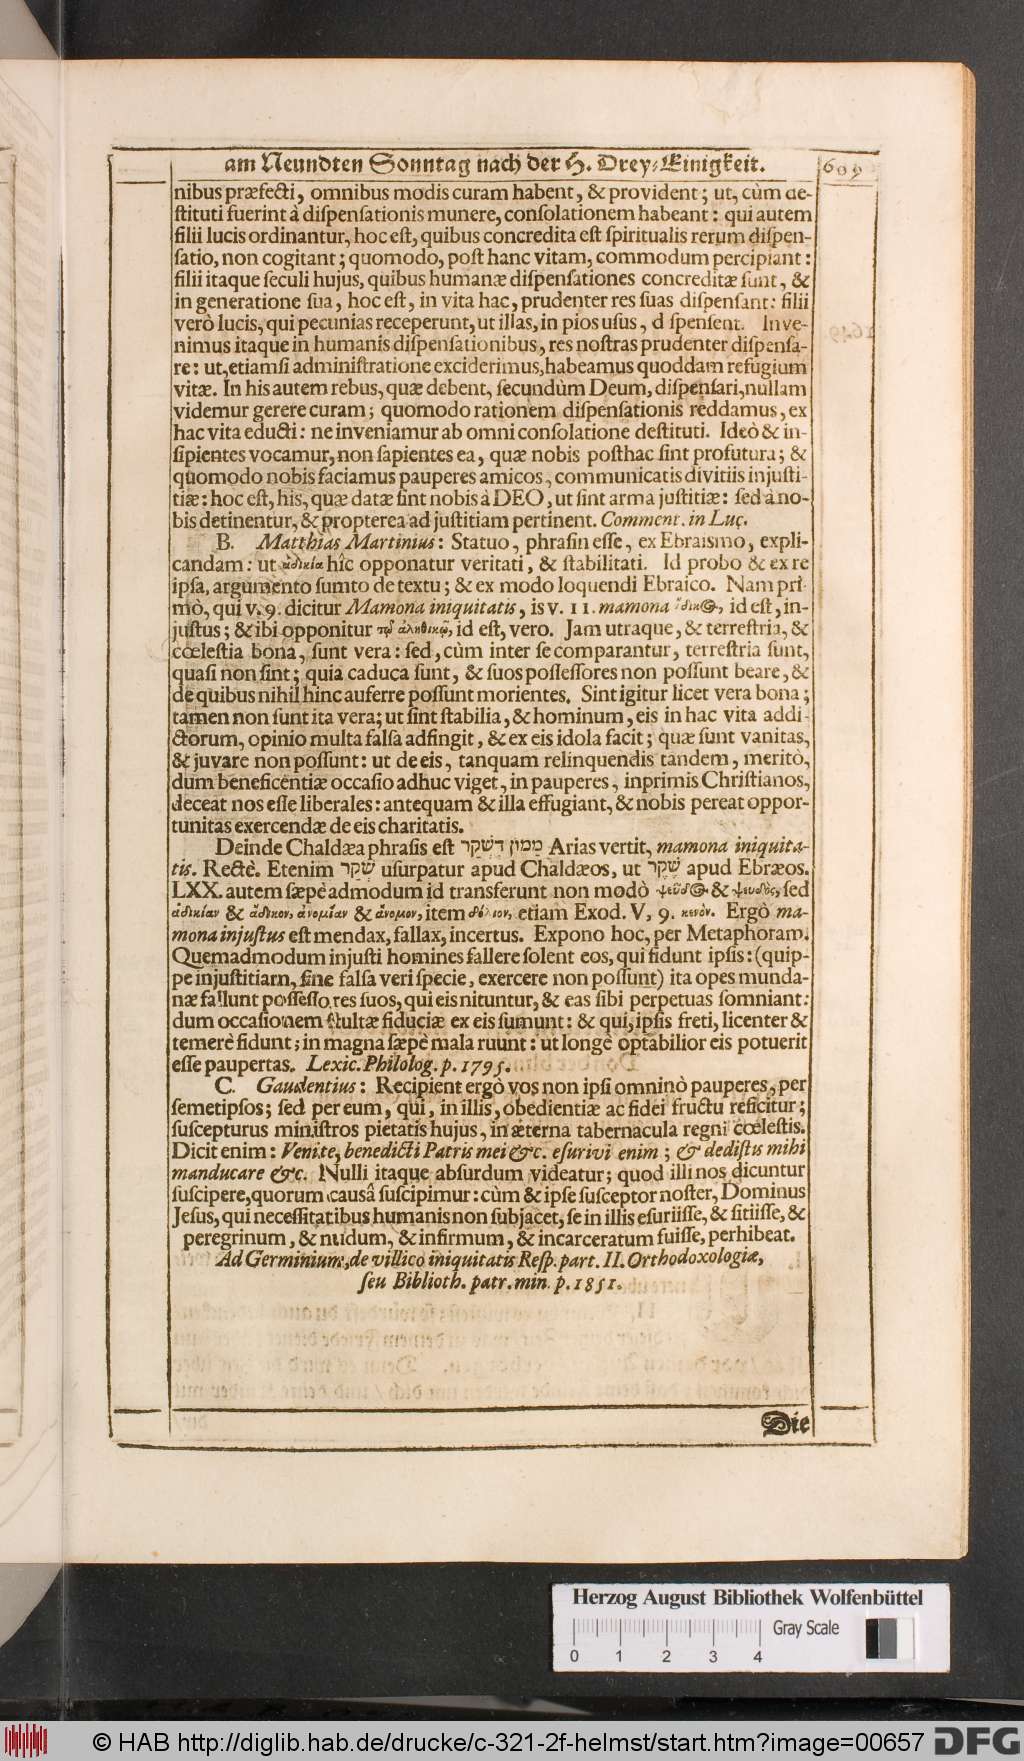 am Neundten Sonntag nach der H. Drey-Einigkeit. 609
nibus præfecti, omnibus modis curam habent, & provident; ut, cùm de-
ſtituti fuerint à diſpenſationis munere, conſolationem habeant: qui autem
filii lucis ordinantur, hoc eſt, quibus concredita eſt ſpiritualis rerum diſpen-
ſatio, non cogitant; quomodo, poſt hanc vitam, commodum percipiant:
filii itaque ſeculi hujus, quibus humanæ diſpenſationes concreditæ ſunt, &
in generatione ſua, hoc eſt, in vita hac, prudenter res ſuas diſpenſant: filii
verò lucis, qui pecunias receperunt, ut illas, in pios uſus, d ſpenſent. Inve-
nimus itaque in humanis diſpenſationibus, res noſtras prudenter diſpenſa-
re: ut, etiamſi adminiſtratione exciderimus, habeamus quoddam refugium
vitæ. In his autem rebus, quæ debent, ſecundùm Deum, diſpenſari, nullam
videmur gerere curam; quomodo rationem diſpenſationis reddamus, ex
hac vita educti: ne inveniamur ab omni conſolatione deſtituti. Ideò & in-
ſipientes vocamur, non ſapientes ea, quæ nobis poſthac ſint profutura; &
quomodo nobis faciamus pauperes amicos, communicatis divitiis injuſti-
tiæ: hoc eſt, his, quæ datæ ſint nobis à DEO, ut ſint arma juſtitiæ: ſed à no-
bis detinentur, & propterea ad juſtitiam pertinent. Comment. in Luc.
B. Matthias Martinius: Statuo, phraſin eſſe, ex Ebraiſmo, expli-
candam: ut ἀδικία hîc opponatur veritati, & ſtabilitati. Id probo & ex re
ipſa, argumento ſumto de textu; & ex modo loquendi Ebraico. Nam pri-
mò, qui v. 9. dicitur Mamona iniquitatis, is v. 11. mamona ἄδικος, id eſt, in-
juſtus; & ibi opponitur τῷ ἀληθικῷ, id eſt, vero. Jam utraque, & terreſtria, &
cœleſtia bona, ſunt vera: ſed, cùm inter ſe comparantur, terreſtria ſunt,
quaſi non ſint; quia caduca ſunt, & ſuos poſſeſſores non poſſunt beare, &
de quibus nihil hinc auferre poſſunt morientes. Sint igitur licet vera bona;
tamen non ſunt ita vera; ut ſint ſtabilia, & hominum, eis in hac vita addi-
ctorum, opinio multa falſa adfingit, & ex eis idola facit; quæ ſunt vanitas,
& juvare non poſſunt: ut de eis, tanquam relinquendis tandem, meritò,
dum beneficentiæ occaſio adhuc viget, in pauperes, inprimis Chriſtianos,
deceat nos eſſe liberales: antequam & illa effugiant, & nobis pereat oppor-
tunitas exercendæ de eis charitatis.
Deinde Chaldæa phraſis eſt מַמוֹן דִשְׁקַר Arias vertit, mamona iniquita-
tis. Rectè. Etenim שְׁקַר uſurpatur apud Chaldæos, ut שֶׁקֶר apud Ebræos.
LXX. autem ſæpè admodum id transferunt non modò ψεῦδος & ψευδὸς, ſed
ἀδικίαν & ἄδικον, ἀνομίαν & ἄνομον, item δόλιον, etiam Exod. V, 9. κενόν. Ergò ma-
mona injuſtus eſt mendax, fallax, incertus. Expono hoc, per Metaphoram.
Quemadmodum injuſti homines fallere ſolent eos, qui fidunt ipſis: (quip-
pe injuſtitiam, ſine falſa veri ſpecie, exercere non poſſunt) ita opes munda-
næ fallunt poſſeſſores ſuos, qui eis nituntur, & eas ſibi perpetuas ſomniant:
dum occaſionem ſtultæ fiduciæ ex eis ſumunt: & qui, ipſis freti, licenter &
temerè fidunt; in magna ſæpè mala ruunt: ut longè optabilior eis potuerit
eſſe paupertas. Lexic. Philolog. p. 1795.
C. Gaudentius: Recipient ergò vos non ipſi omninò pauperes, per
ſemetipſos; ſed per eum, qui, in illis, obedientiæ ac fidei fructu reficitur;
ſuſcepturus miniſtros pietatis hujus, in æterna tabernacula regni cœleſtis.
Dicit enim: Venite, benedicti Patris mei &c. eſurivi enim; & dediſtis mihi
manducare &c. Nulli itaque abſurdum videatur; quod illi nos dicuntur
ſuſcipere, quorum causâ ſuſcipimur: cùm & ipſe ſuſceptor noſter, Dominus
Jeſus, qui neceſſitatibus humanis non ſubjacet, ſe in illis eſuriiſſe, & ſitiiſſe, &
peregrinum, & nudum, & infirmum, & incarceratum fuiſſe, perhibeat.
Ad Germinium, de villico iniquitatis Reſp. part. II. Orthodoxologiæ,
ſeu Biblioth. patr. min. p. 1851.
Die
Herzog August Bibliothek Wolfenbüttel
Gray Scale
0 1 2 3 4
© HAB http://diglib.hab.de/drucke/c-321-2f-helmst/start.htm?image=00657 DFG